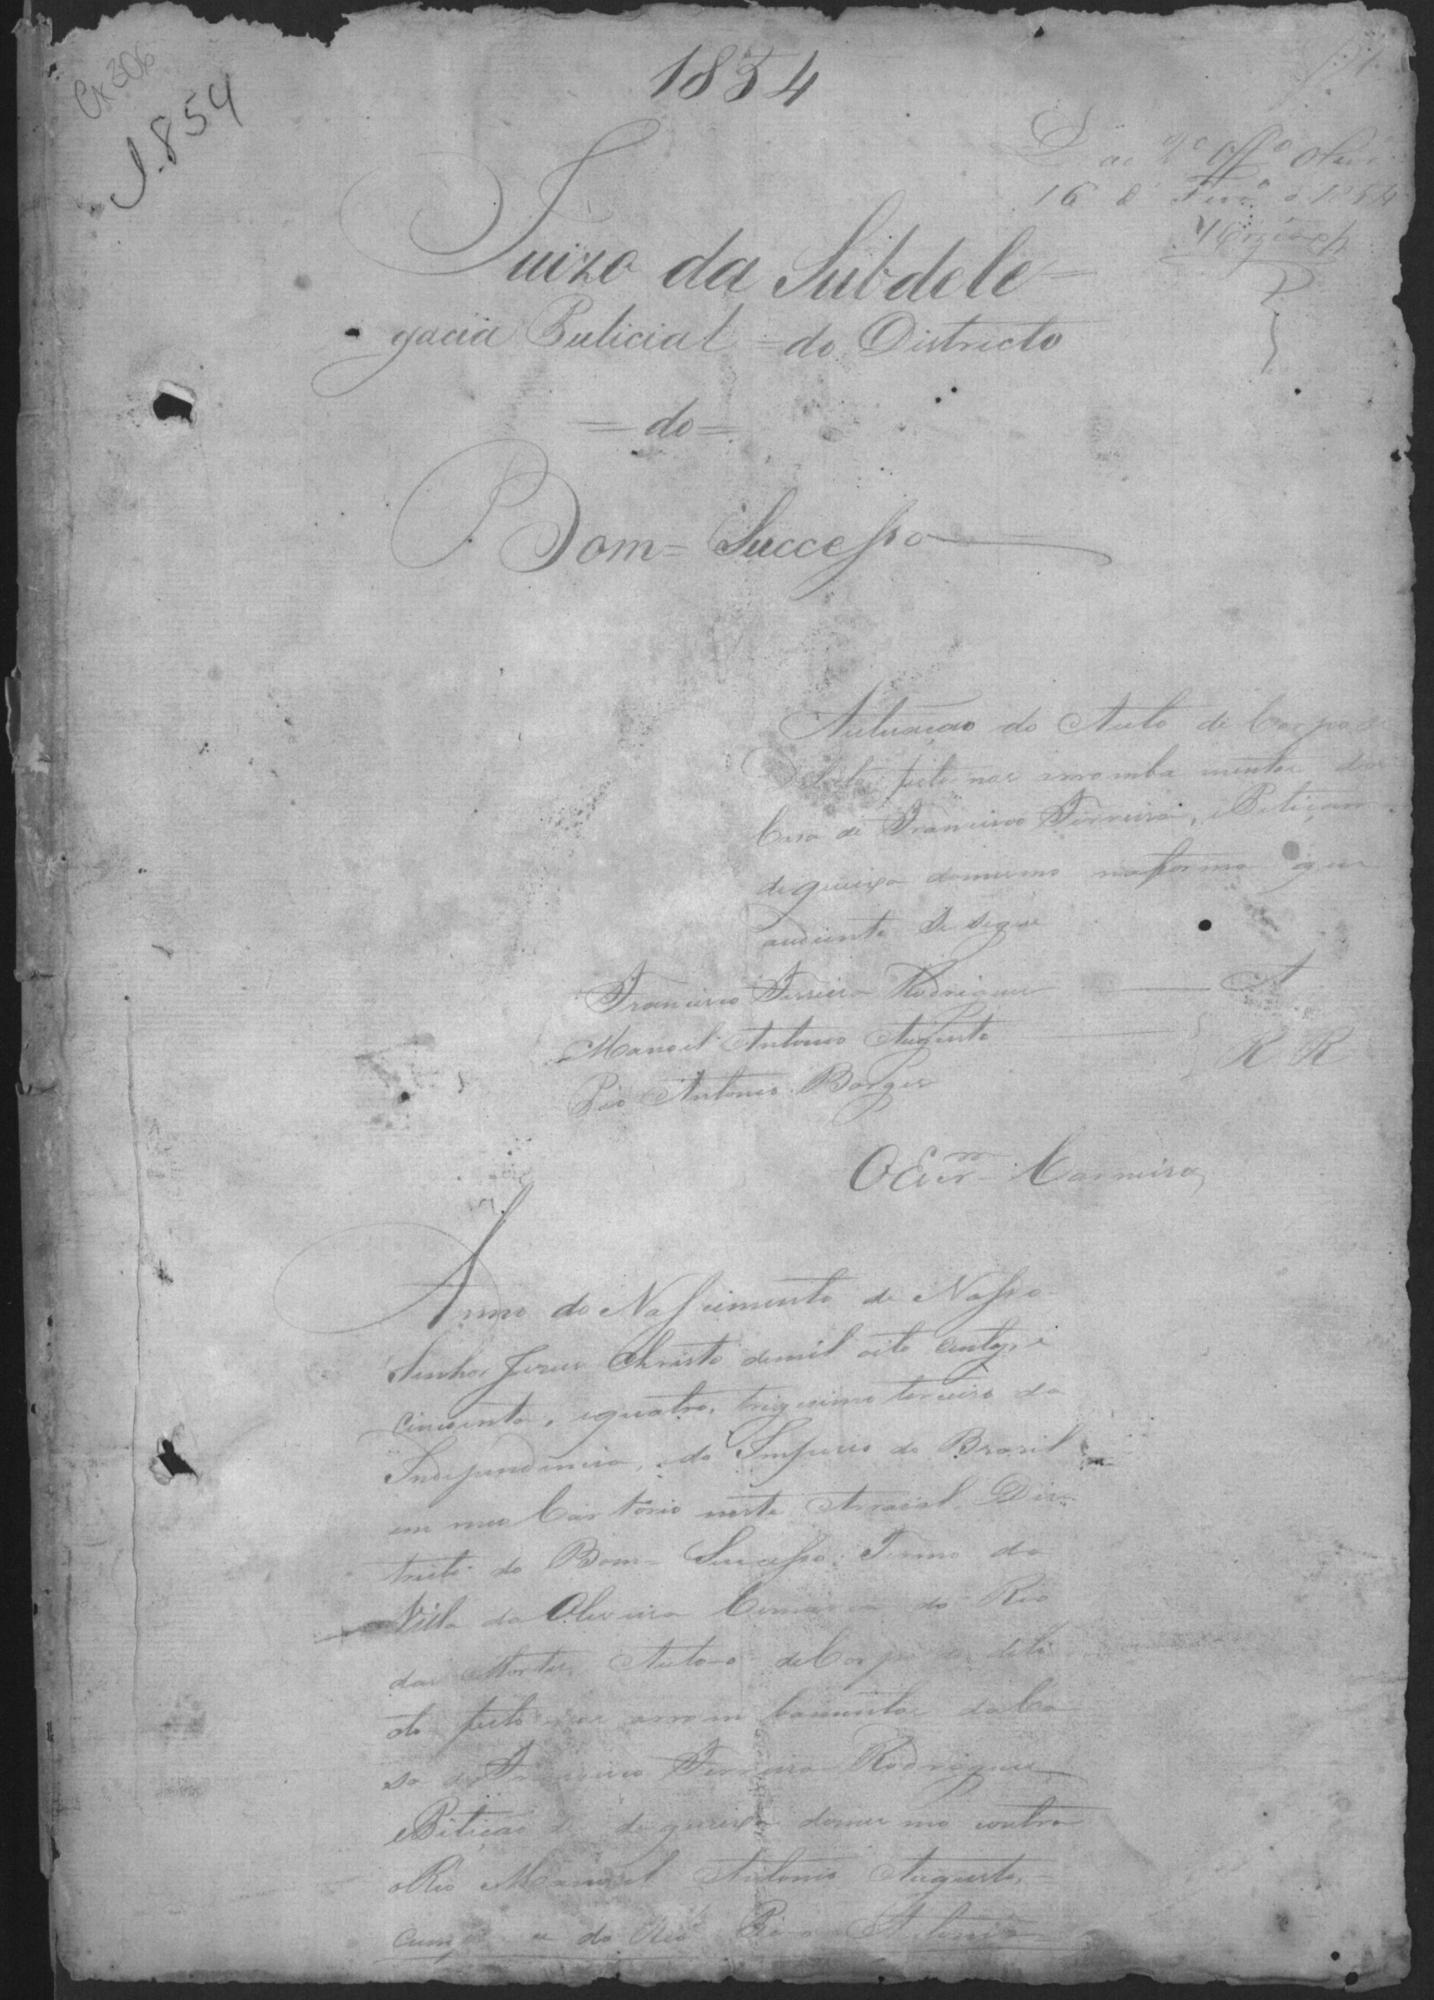 1854
Cx 306
1.854
16 de Fevº 1854
Juizo da Subdele=
gacia Pulicial = do Districto
= do =
Bom = Successo
Autuaçao do Auto de Corpo de
Delito feito nos arromba mentos da
Casa de Francisco Ferreira, e Petiçam
de queixa domesmo na forma que
audiente Se Segue
Francisco Ferreira Rodrigues A
Manoel Antonio Augusto
Pio Antonio Borges R R
O Escrm Carneiro
Anno do Nascimento de Nosso
Senhor Jesus Christo demil oito centos, e
cincoenta, equatro, trigesimo terceiro da
Independencia, e do Imperio do Brasil
em meu Cartorio neste Arraial Dis=
tricto do Bom = Successo, Termo da
Villa da Oliveira Comarca do Rio
das Mortes, Auto o de Corpo de deli
to feito nos arrom bamentos da Ca
sa de Francisco Ferreira Rodrigues
e Petiçao de queixa domes mo contra
o Reo Manoel Antonio Augusto, =
do Reo Pio Antonio